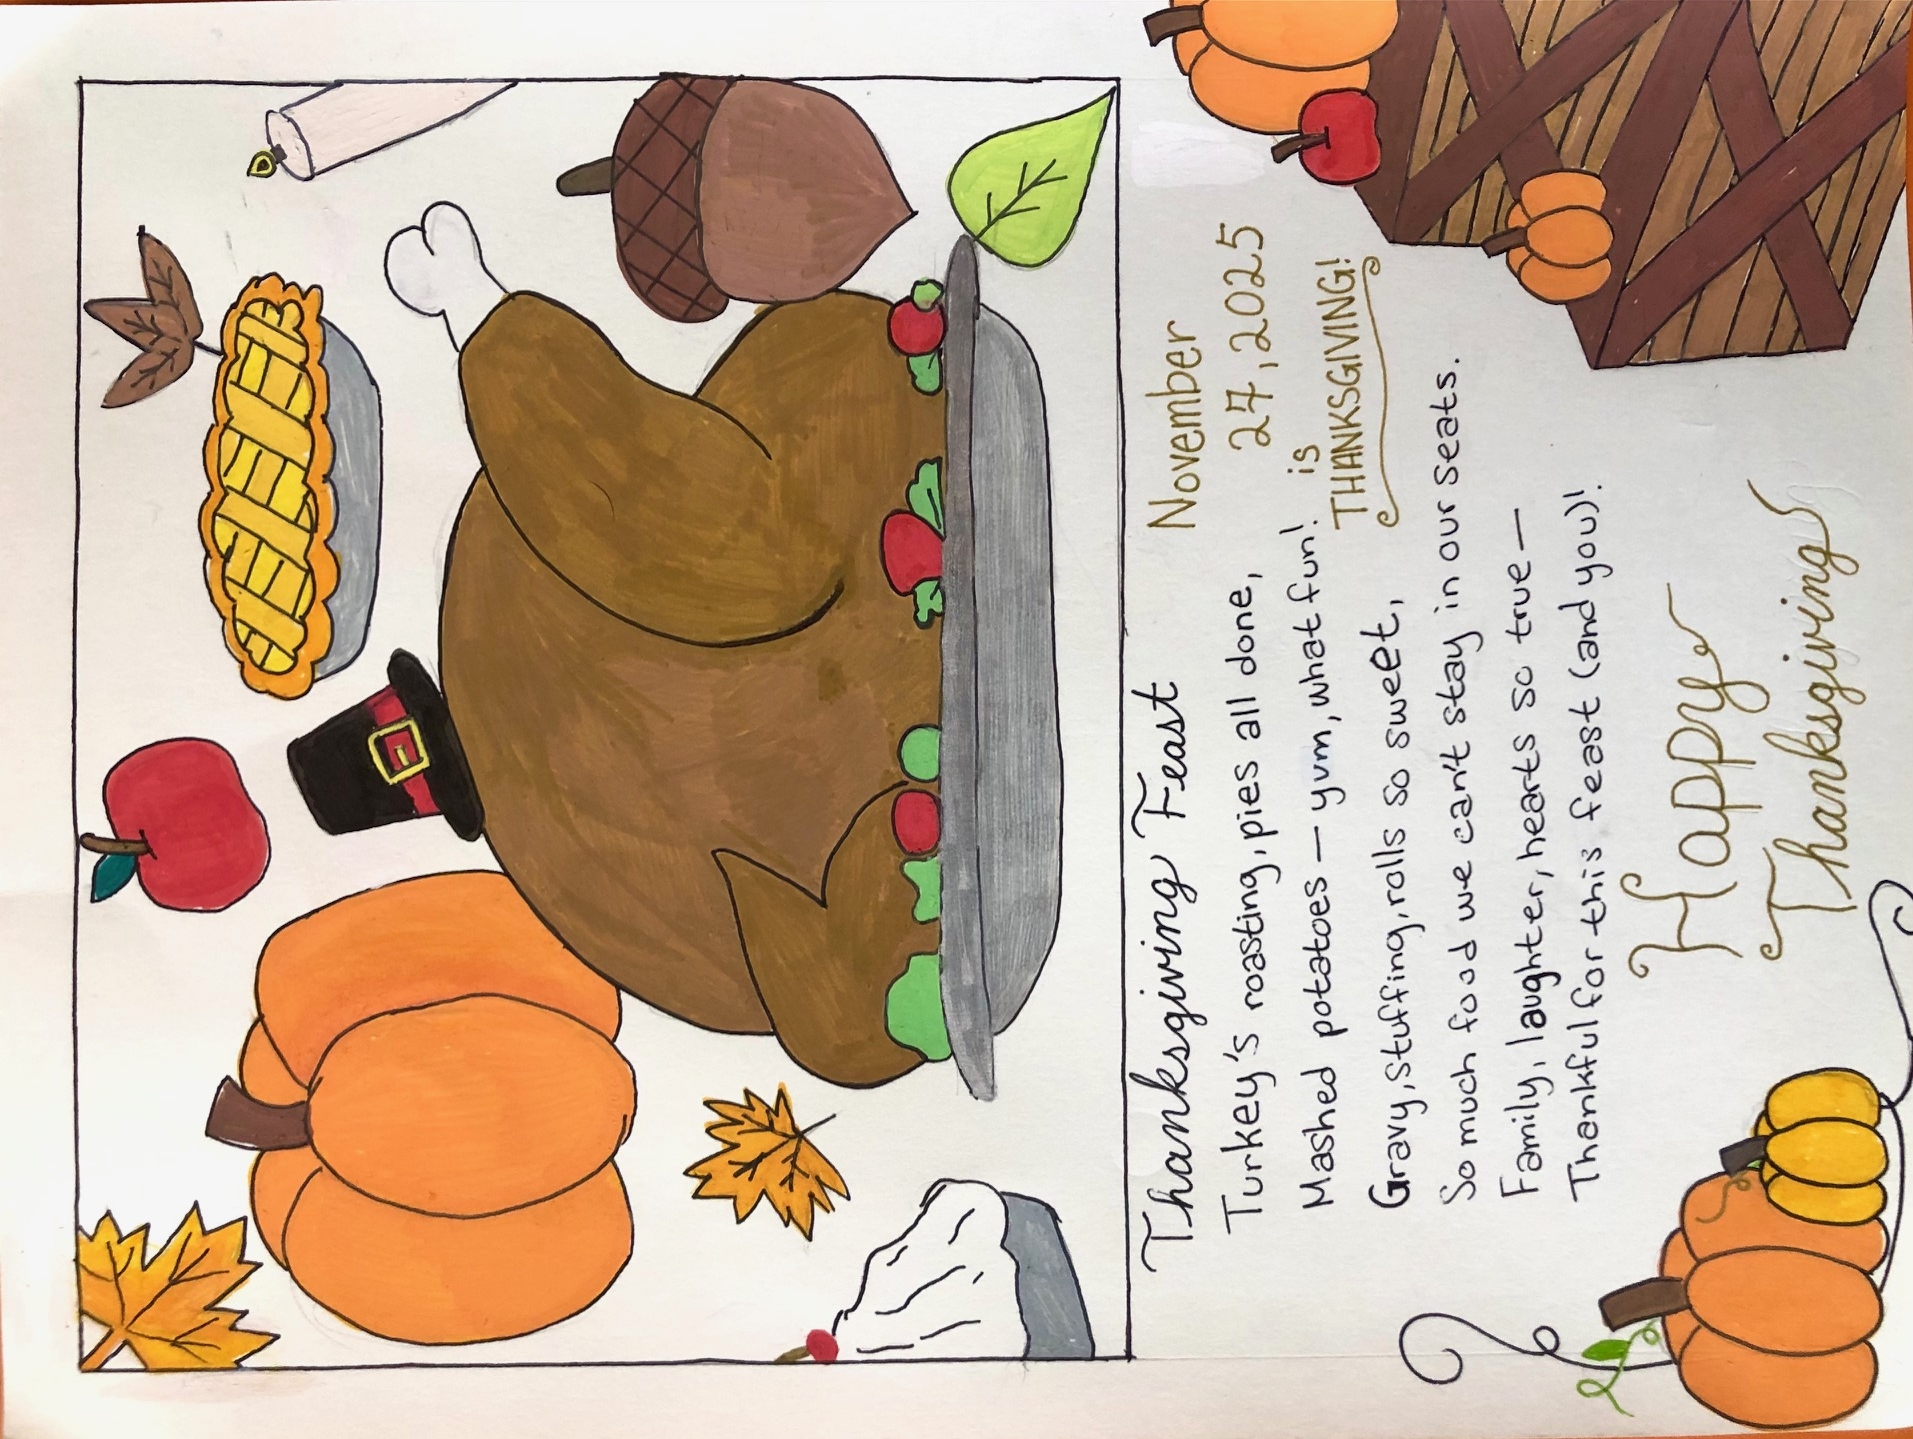 Thanksgiving Feast
Turkey's roasting, pies all done,
Mashed potatoes — yum, what fun!
Gravy, stuffing, rolls so sweet,
So much food we can't stay in our seats.
Family, laughter, hearts so true —
Thankful for this feast (and you)!
November
27, 2025
is
THANKSGIVING!
Happy
Thanksgiving